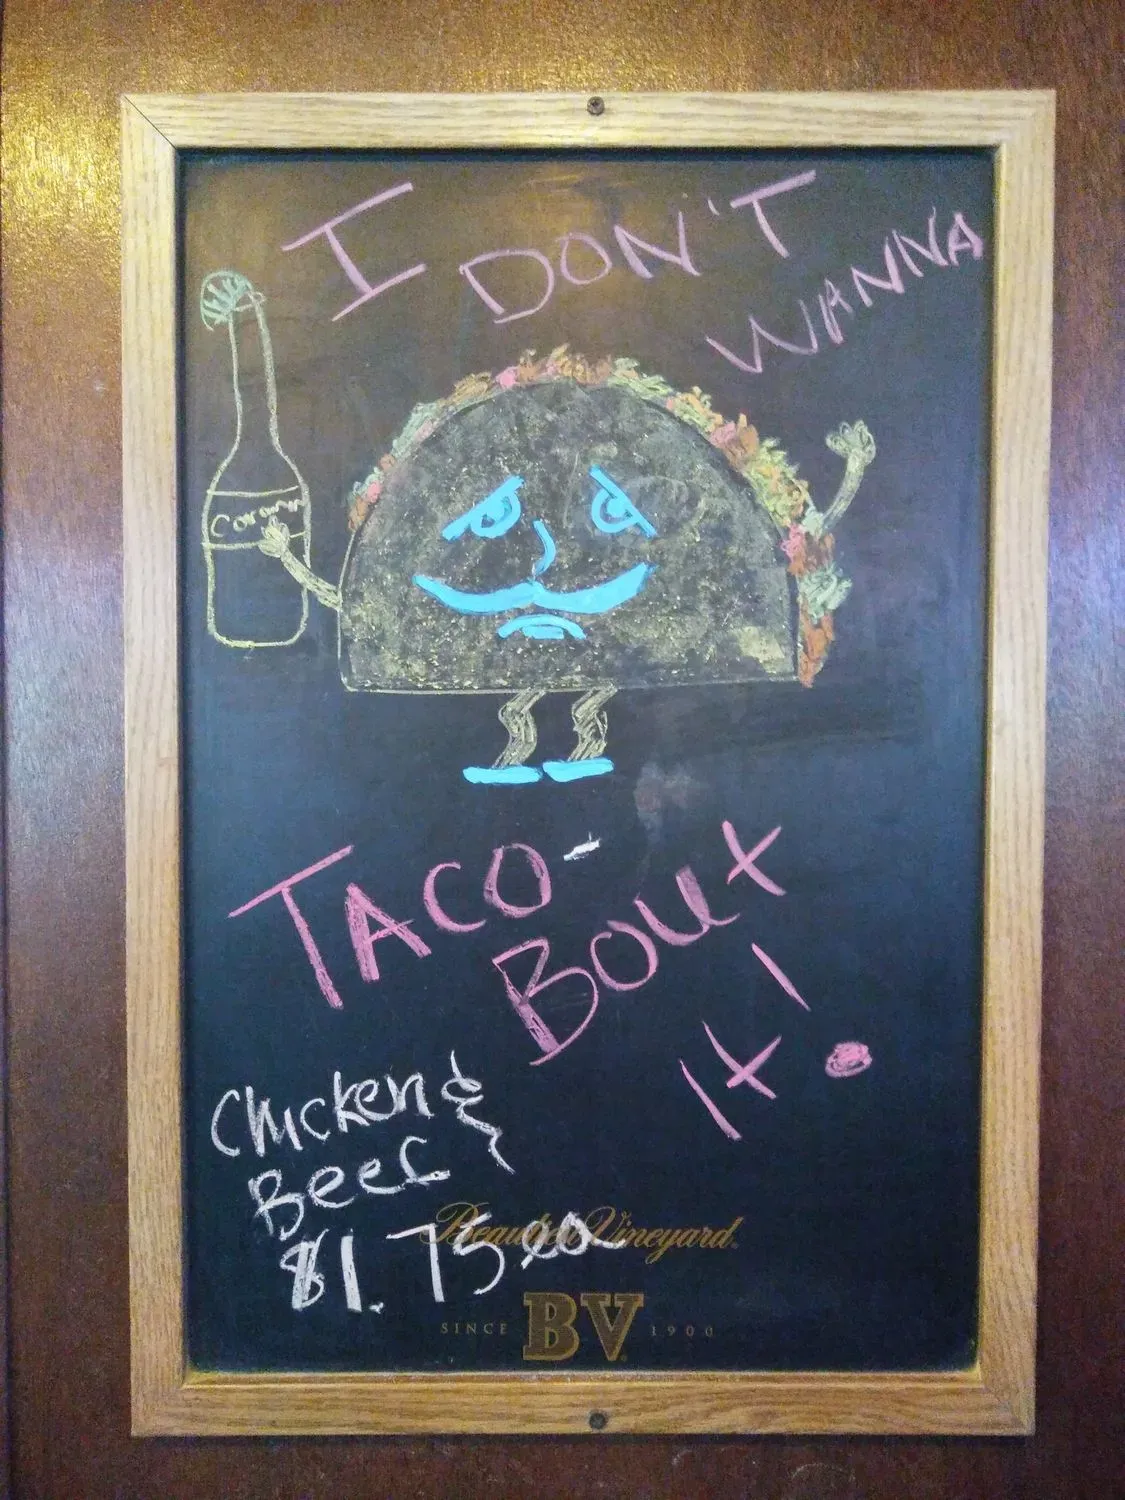 I DON'T
WANNA
Corona
TACO-
BOUT
It!
Chicken &
Beef
$1.75 ea
Beaulieu Vineyard
SINCE BV 1900